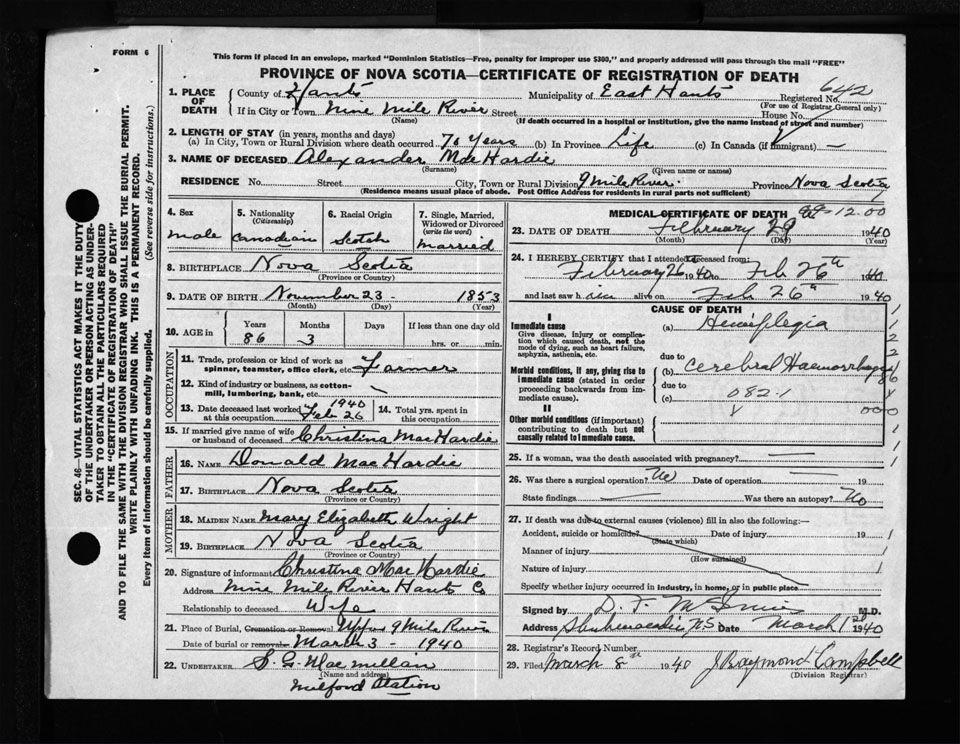 FORM 6
This form if placed in an envelope, marked "Dominion Statistics—Free, penalty for improper use $300," and properly addressed will pass through the mail "FREE"
PROVINCE OF NOVA SCOTIA—CERTIFICATE OF REGISTRATION OF DEATH
SEC. 46—VITAL STATISTICS ACT MAKES IT THE DUTY
OF THE UNDERTAKER OR PERSON ACTING AS UNDER-
TAKER TO OBTAIN ALL THE PARTICULARS REQUIRED
IN THE "CERTIFICATE OF REGISTRATION OF DEATH"
AND TO FILE THE SAME WITH THE DIVISION REGISTRAR WHO SHALL ISSUE THE BURIAL PERMIT.
WRITE PLAINLY WITH UNFADING INK. THIS IS A PERMANENT RECORD.
Every item of information should be carefully supplied. (See reverse side for instructions.)
1. PLACE OF DEATH County of Hants Municipality of East Hants Registered No. 642
(For use of Registrar General only)
If in City or Town Nine Mile River Street House No.
(Name) (If death occurred in a hospital or institution, give the name instead of street and number)
2. LENGTH OF STAY (in years, months and days)
(a) In City, Town or Rural Division where death occurred 70 years (b) In Province Life (c) In Canada (if immigrant) —
3. NAME OF DECEASED Alexander MacHardie
(Surname) (Given name or names)
RESIDENCE No. Street City, Town or Rural Division 9 Mile River Province Nova Scotia
(Residence means usual place of abode. Post Office Address for residents in rural parts not sufficient)
4. Sex male
5. Nationality (Citizenship) Canadian
6. Racial Origin Scotch
7. Single, Married, Widowed or Divorced (write the word) married
8. BIRTHPLACE Nova Scotia
(Province or Country)
9. DATE OF BIRTH November 23 - 1853
(Month) (Day) (Year)
10. AGE in Years 86 Months 3 Days If less than one day old hrs. or min.
OCCUPATION
11. Trade, profession or kind of work as spinner, teamster, office clerk, etc. Farmer
12. Kind of industry or business, as cotton-mill, lumbering, bank, etc.
13. Date deceased last worked at this occupation 1940 Feb 26
14. Total yrs. spent in this occupation
15. If married give name of wife or husband of deceased Christina MacHardie
FATHER
16. NAME Donald MacHardie
17. BIRTHPLACE Nova Scotia
(Province or Country)
MOTHER
18. MAIDEN NAME Mary Elizabeth Wright
19. BIRTHPLACE Nova Scotia
(Province or Country)
20. Signature of informant Christina MacHardie
Address Nine Mile River Hants Co
Relationship to deceased Wife
21. Place of Burial, Cremation or Removal Upper 9 Mile River
Date of burial or removal March 3 - 1940
22. UNDERTAKER S. G. Macmillan
(Name and address)
Milford Station
MEDICAL CERTIFICATE OF DEATH 12.00
23. DATE OF DEATH February 29 1940
(Month) (Day) (Year)
24. I HEREBY CERTIFY that I attended deceased from:
February 26 1940 to Feb 26th 1940
and last saw him alive on Feb 26th 1940
CAUSE OF DEATH
I
Immediate cause
Give disease, injury or complication which caused death, not the mode of dying, such as heart failure, asphyxia, asthenia, etc.
(a) Hemiplegia
due to
Morbid conditions, if any, giving rise to immediate cause (stated in order proceeding backwards from immediate cause).
(b) Cerebral Haemorrhage
due to
(c) 082.1
II
Other morbid conditions (if important) contributing to death but not causally related to immediate cause.
25. If a woman, was the death associated with pregnancy? —
26. Was there a surgical operation? No Date of operation 19
State findings — Was there an autopsy? No
27. If death was due to external causes (violence) fill in also the following:—
Accident, suicide or homicide? Date of injury 19
(State which)
Manner of injury
(How sustained)
Nature of injury
Specify whether injury occurred in industry, in home, or in public place
Signed by M.D.
Address Shubenacadie N.S. Date March 1st 1940
28. Registrar's Record Number
29. Filed March 8th 1940 J Raymond Campbell
(Division Registrar)